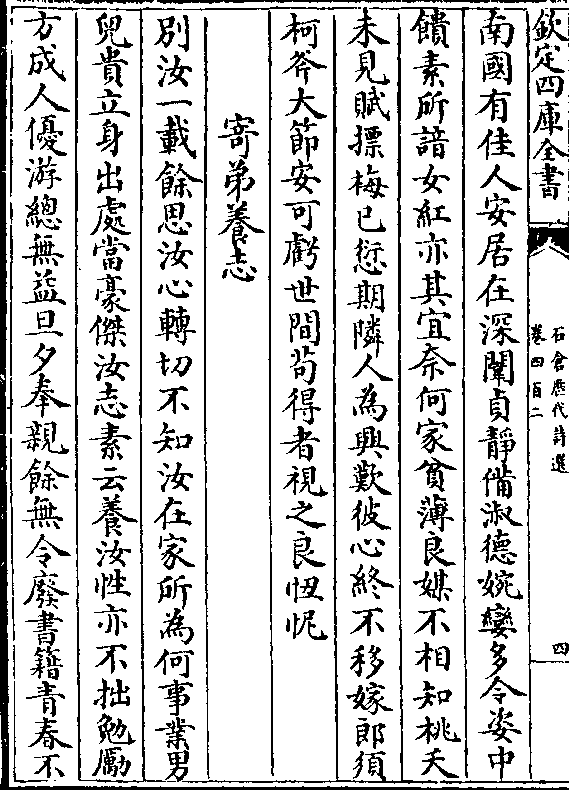 欽定四庫全書
石倉歷代詩選
卷四百二
四
南國有佳人安居在深闈貞靜備淑德婉孌多令姿中
饋素所諳女紅亦其宜奈何家貧薄良媒不相知桃夭
未見賦摽梅已愆期隣人為興歎彼心終不移嫁郎須
柯斧大節安可虧世間茍得者視之良忸怩
寄弟養志
別汝一載餘思汝心轉切不知汝在家所為何事業男
兒貴立身出處當豪傑汝志素云養汝性亦不拙勉勵
方成人優游總無益旦夕奉親餘無令廢書籍青春不